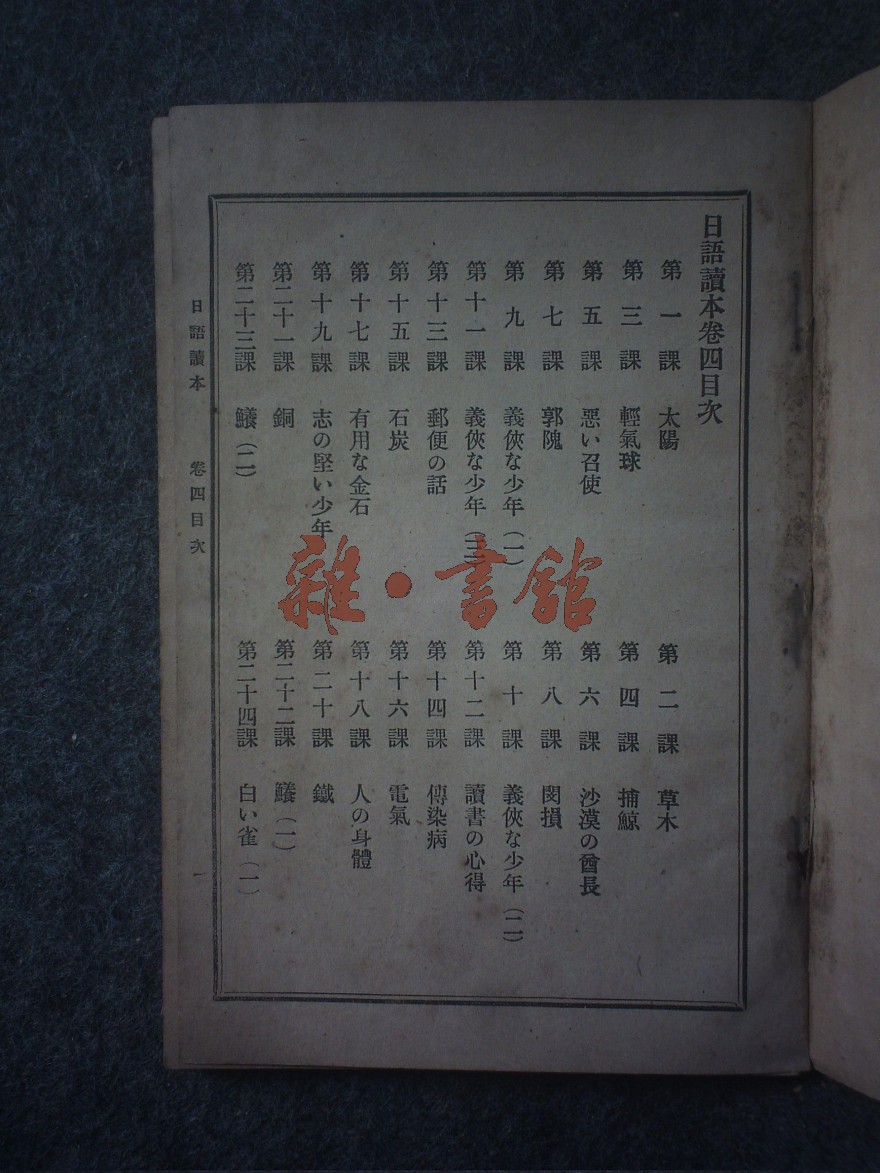 日語讀本卷四目次
第一課 太陽
第二課 草木
第三課 輕氣球
第四課 捕鯨
第五課 惡い召使
第六課 沙漠の酋長
第七課 郭隗
第八課 閔損
第九課 義俠な少年(一)
第十課 義俠な少年(二)
第十一課 義俠な少年(三)
第十二課 讀書の心得
第十三課 郵便の話
第十四課 傳染病
第十五課 石炭
第十六課 電氣
第十七課 有用な金石
第十八課 人の身體
第十九課 志の堅い少年
第二十課 鐵
第二十一課 銅
第二十二課 鱶(一)
第二十三課 鱶(二)
第二十四課 白い雀(一)
日語讀本 卷四目次 一
雜·書館